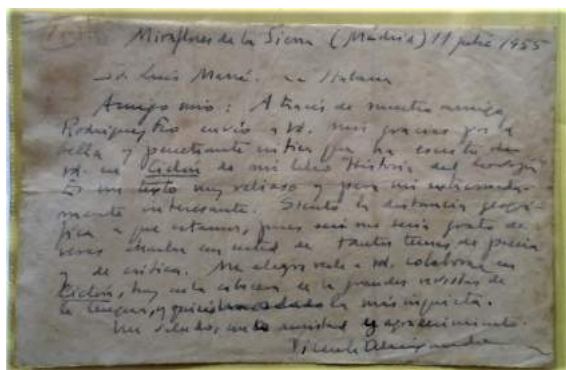 Miraflores de la Sierra (Madrid) 11 julio 1955
Sr. Luis Marré. La Habana
Amigo mío: A través de nuestro amigo
Rodríguez Feo envío a Vd. mis gracias por la
bella y penetrante crítica que ha escrito de
Vd. en Ciclón de mi libro "Historia del corazón"
Es un texto muy valioso y para mí extremada-
mente interesante. Siento la distancia geográ-
fica a que estamos, pues si no me sería grato de
veras charlar con usted de tantos temas de poesía
y de crítica. Me alegro verle a Vd. colaborar en
Ciclón, hoy en la cabeza de las grandes revistas de
la lengua, y quizás la más inquieta.
Un saludo, con la amistad y agradecimiento.
Vicente Aleixandre